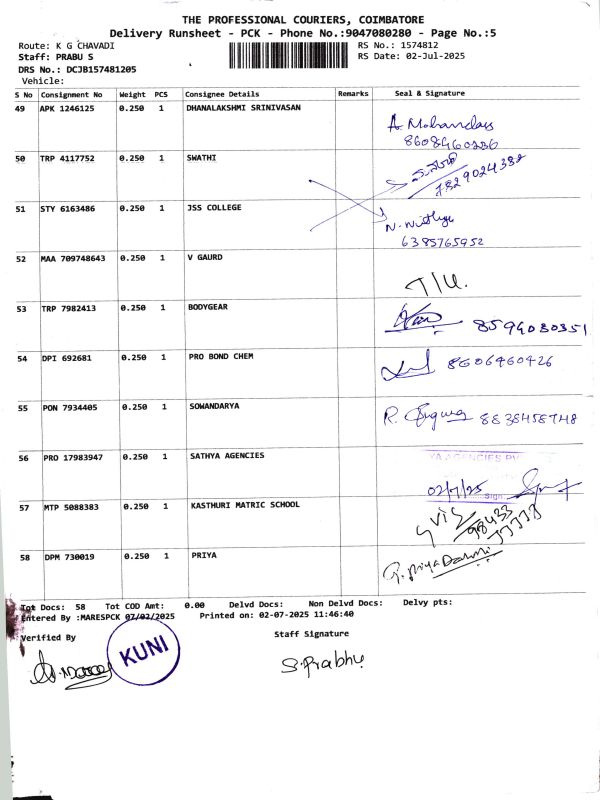 THE PROFESSIONAL COURIERS, COIMBATORE
Delivery Runsheet - PCK - Phone No.:9047080280 - Page No.:5
Route: K G CHAVADI RS No.: 1574812
Staff: PRABU S RS Date: 02-Jul-2025
DRS No.: DCJB157481205
Vehicle:
S No Consignment No Weight PCS Consignee Details Remarks Seal & Signature
49 APK 1246125 0.250 1 DHANALAKSHMI SRINIVASAN
A. Mohandas
8608460236
50 TRP 4117752 0.250 1 SWATHI
7829024382
51 STY 6163486 0.250 1 JSS COLLEGE
6385765952
52 MAA 709748643 0.250 1 V GAURD
53 TRP 7982413 0.250 1 BODYGEAR
8594030351
54 DPI 692681 0.250 1 PRO BOND CHEM
8606460426
55 PON 7934405 0.250 1 SOWANDARYA
8838458748
56 PRO 17983947 0.250 1 SATHYA AGENCIES
YA AGENCIES PV
02/7/25 Sign.
57 MTP 5088383 0.250 1 KASTHURI MATRIC SCHOOL
98433
58 DPM 730019 0.250 1 PRIYA
Tot Docs: 58 Tot COD Amt: 0.00 Delvd Docs: Non Delvd Docs: Delvy pts:
Entered By :MARESPCK 07/02/2025 Printed on: 02-07-2025 11:46:40
Verified By Staff Signature
KUNI
S. Prabhu